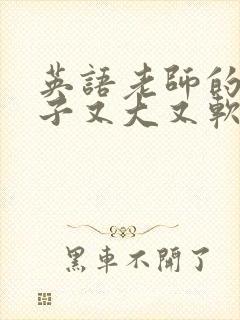 英語老師的
子又大又軟
黑車不開了